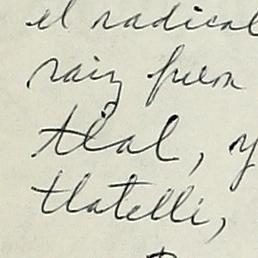 el radical
raiz fuera
tlal, y
tlatelli,